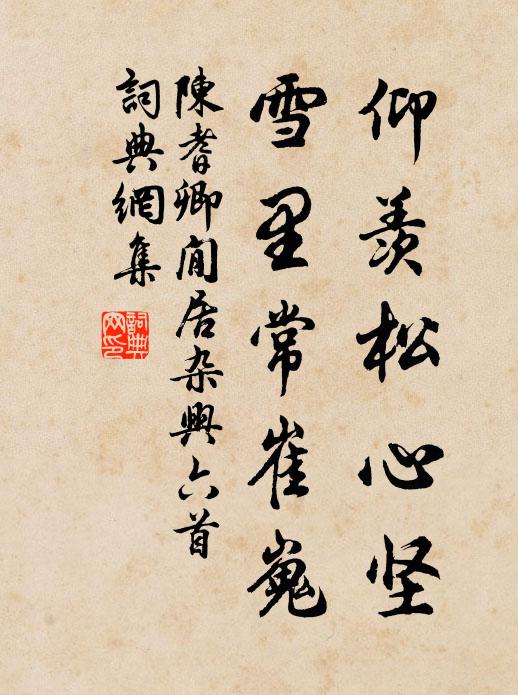 仰羨松心坚
雪里常崔嵬
陳耆卿閒居杂興六首
詞典網集
詞典网印